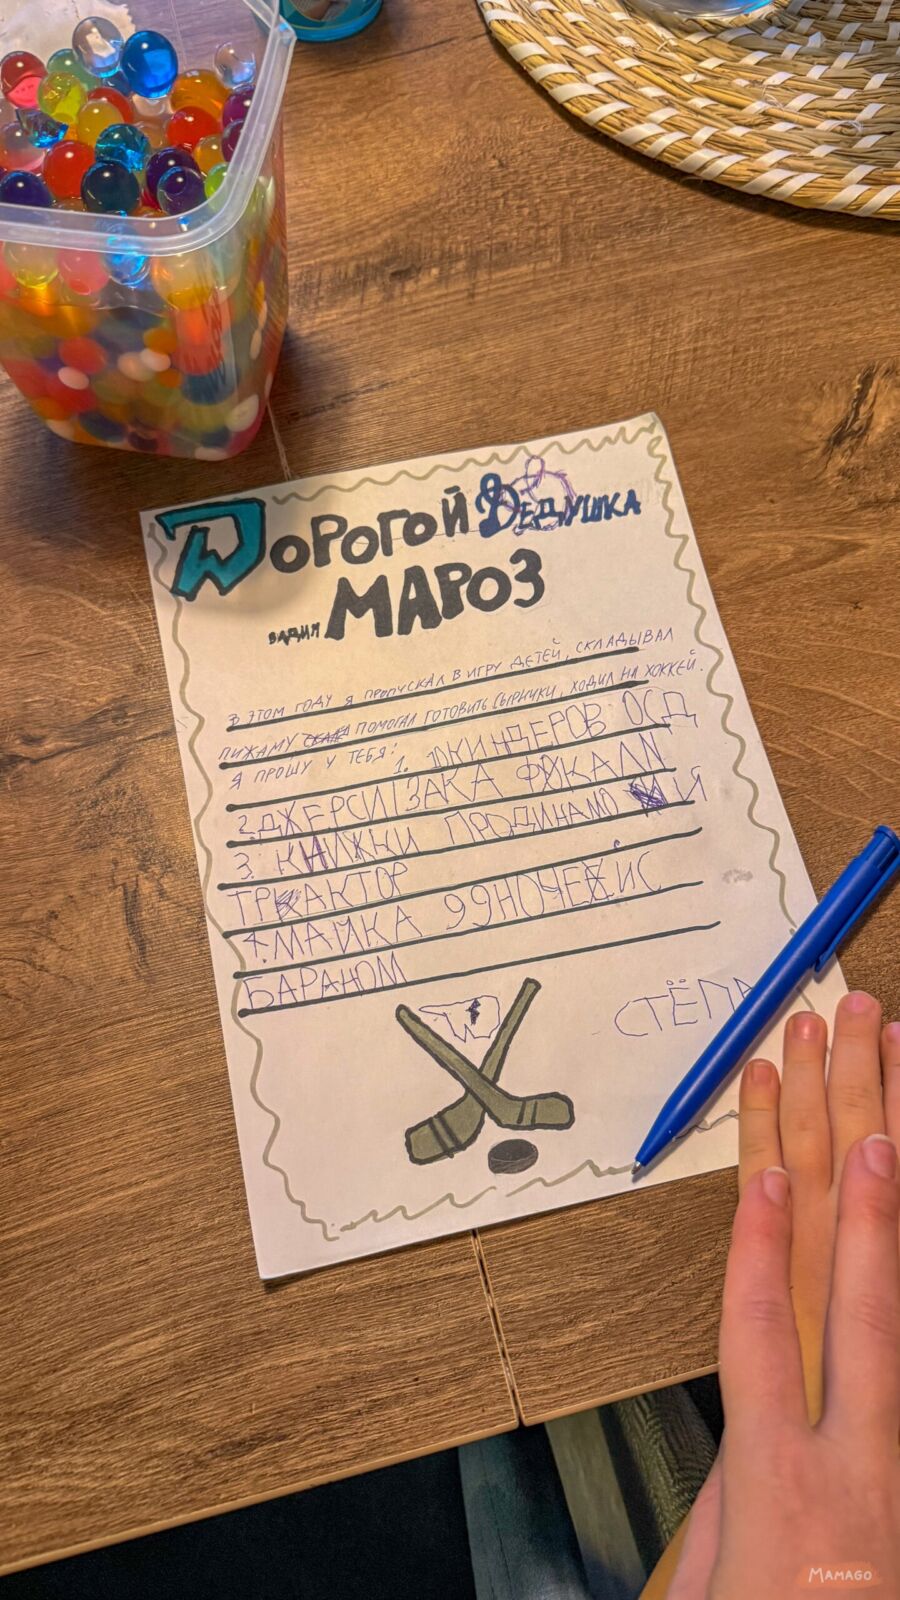 ДОРОГОЙ ДЕДУШКА
ВАДИМ МАРОЗ
В ЭТОМ ГОДУ Я ПРОПУСКАЛ В ИГРУ ДЕТЕЙ, СКЛАДЫВАЛ
ПИЖАМУ ПОМОГАЛ ГОТОВИТЬ СЫРНИЧКИ, ХОДИЛ НА ХОККЕЙ.
Я ПРОШУ У ТЕБЯ:
1. 10КИНДЕРОВ ОСД
2. ДЖЕРСИ ЗАКА ФУКАЛИ
3. КНИЖКИ ПРОДИНАМО И
ТРАКТОР
4. МАЙКА 99НОЧЕЙ ИС
БАРАНОМ
СТЁПА
MAMAGO